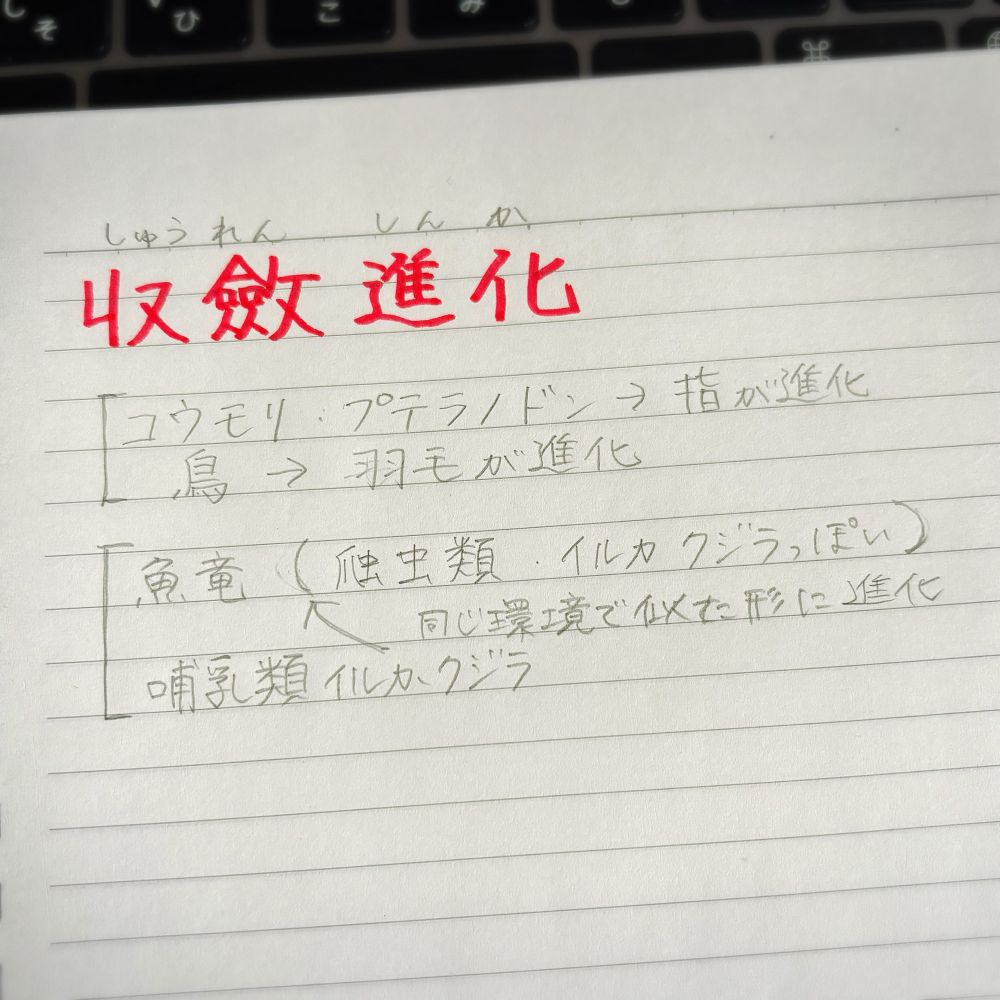 し そ ひ こ み ⌘
しゅうれん しんか
収斂進化
コウモリ・プテラノドン→指が進化
鳥→羽毛が進化
魚竜(爬虫類・イルカクジラっぽい)
同じ環境で似た形に進化
哺乳類イルカ、クジラ